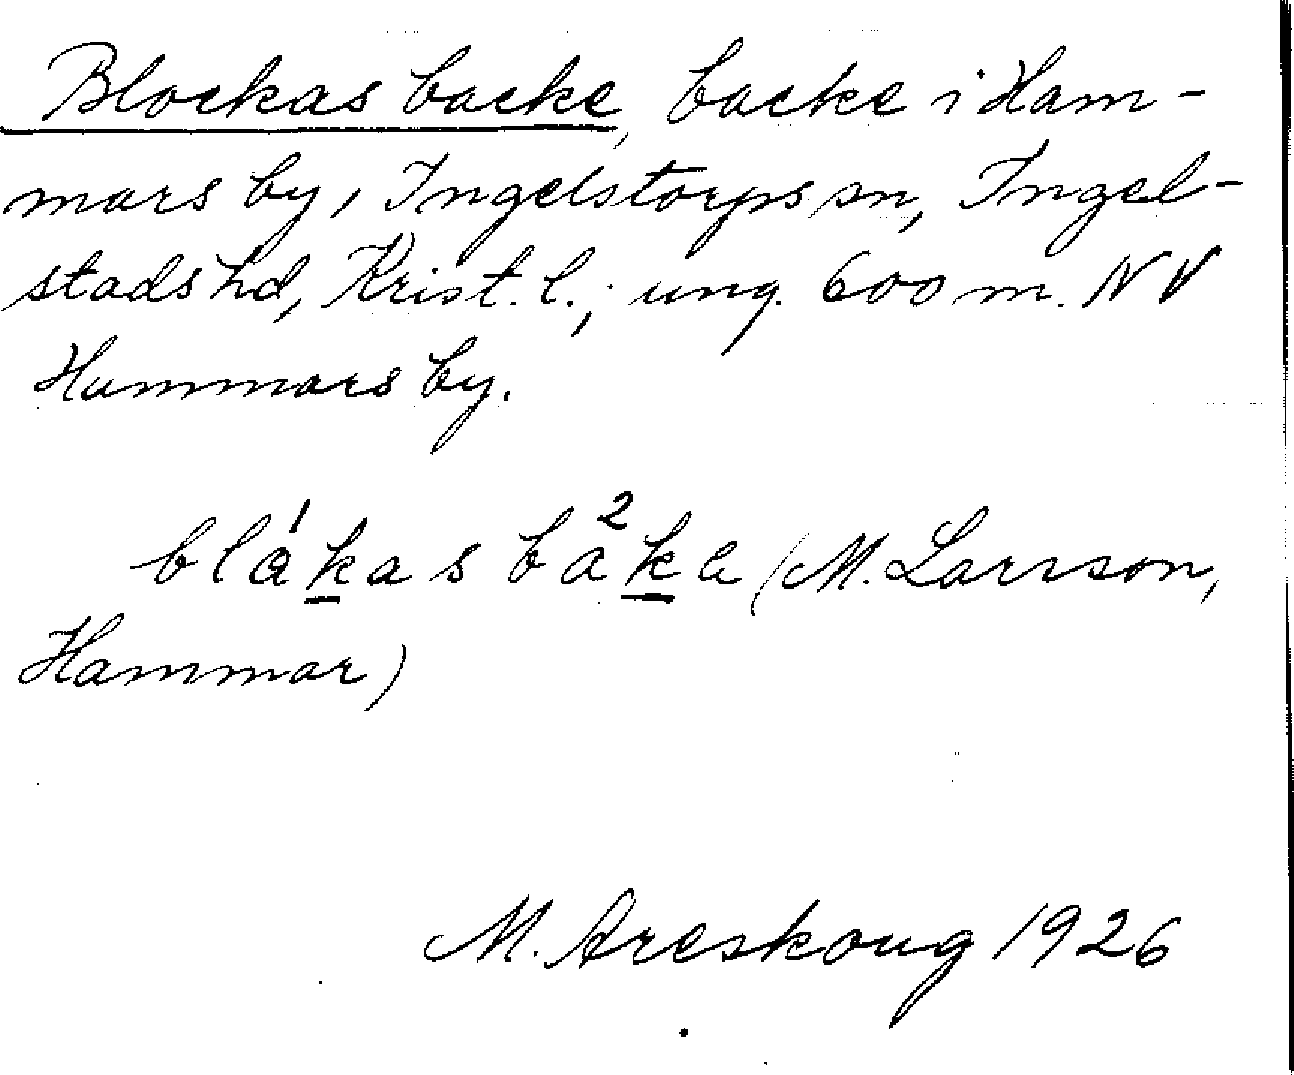 Blockas backe, backe i Ham-
mars by, Ingelstorps sn, Ingel-
stads hd, Krist. l.; ung. 600 m. NV
Hammars by.
blákas ba²ke (M. Larsson,
Hammar)
M. Areskoug 1926